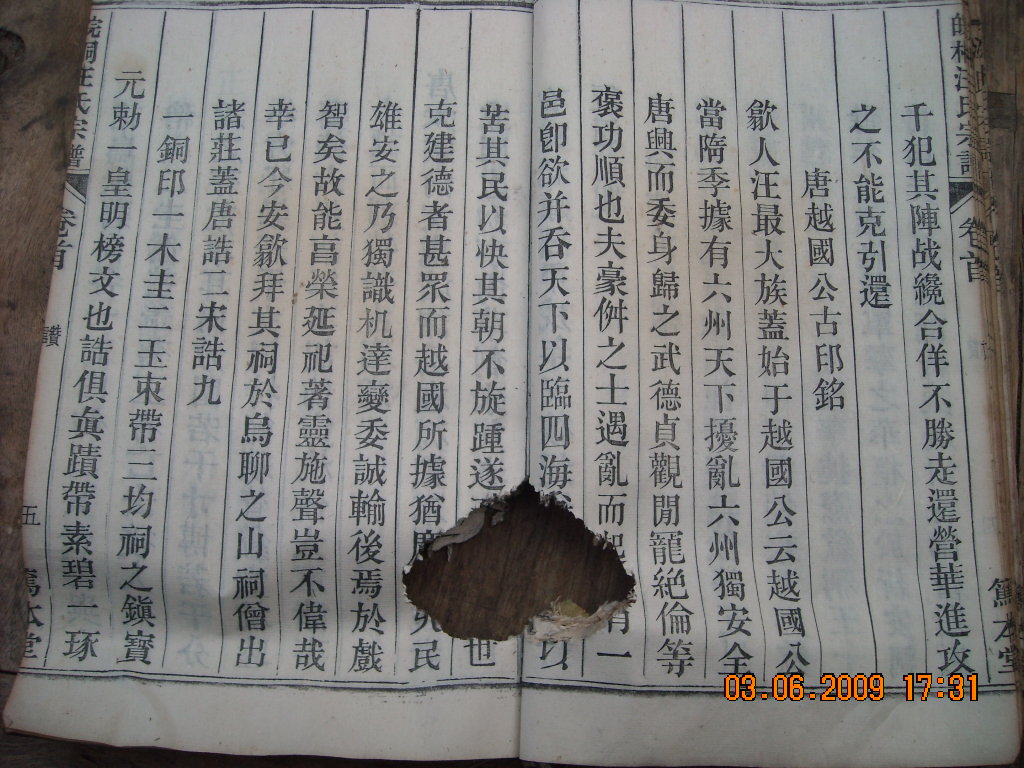 干犯其陣战纔合佯不勝走還營華進攻
之不能克引還
唐越國公古印銘
歙人汪最大族蓋始于越國公云越國公
當隋季據有六州天下擾亂六州獨安全
唐興而委身歸之武德貞觀閒寵絶倫等
褒功順也夫豪傑之士遇亂而起 有一
邑卽欲并吞天下以臨四海 以
苦其民以快其朝不旋踵遂 世
克建德者甚眾而越國所據猶 民
雄安之乃獨識机達變委誠輸後焉於戲
智矣故能亯榮延祀著靈施聲豈不偉哉
幸已今安歙拜其祠於烏聊之山祠僧出
諸莊蓋唐誥二宋誥九
一銅印一木圭二玉束帶三均祠之鎭寶
元勅一皇明榜文也誥俱眞蹟帶素碧一琢
皖桐汪氏宗譜
卷首
讃
五
篤本堂
汪氏宗譜
卷首
篤本堂
03.06.2009 17:31